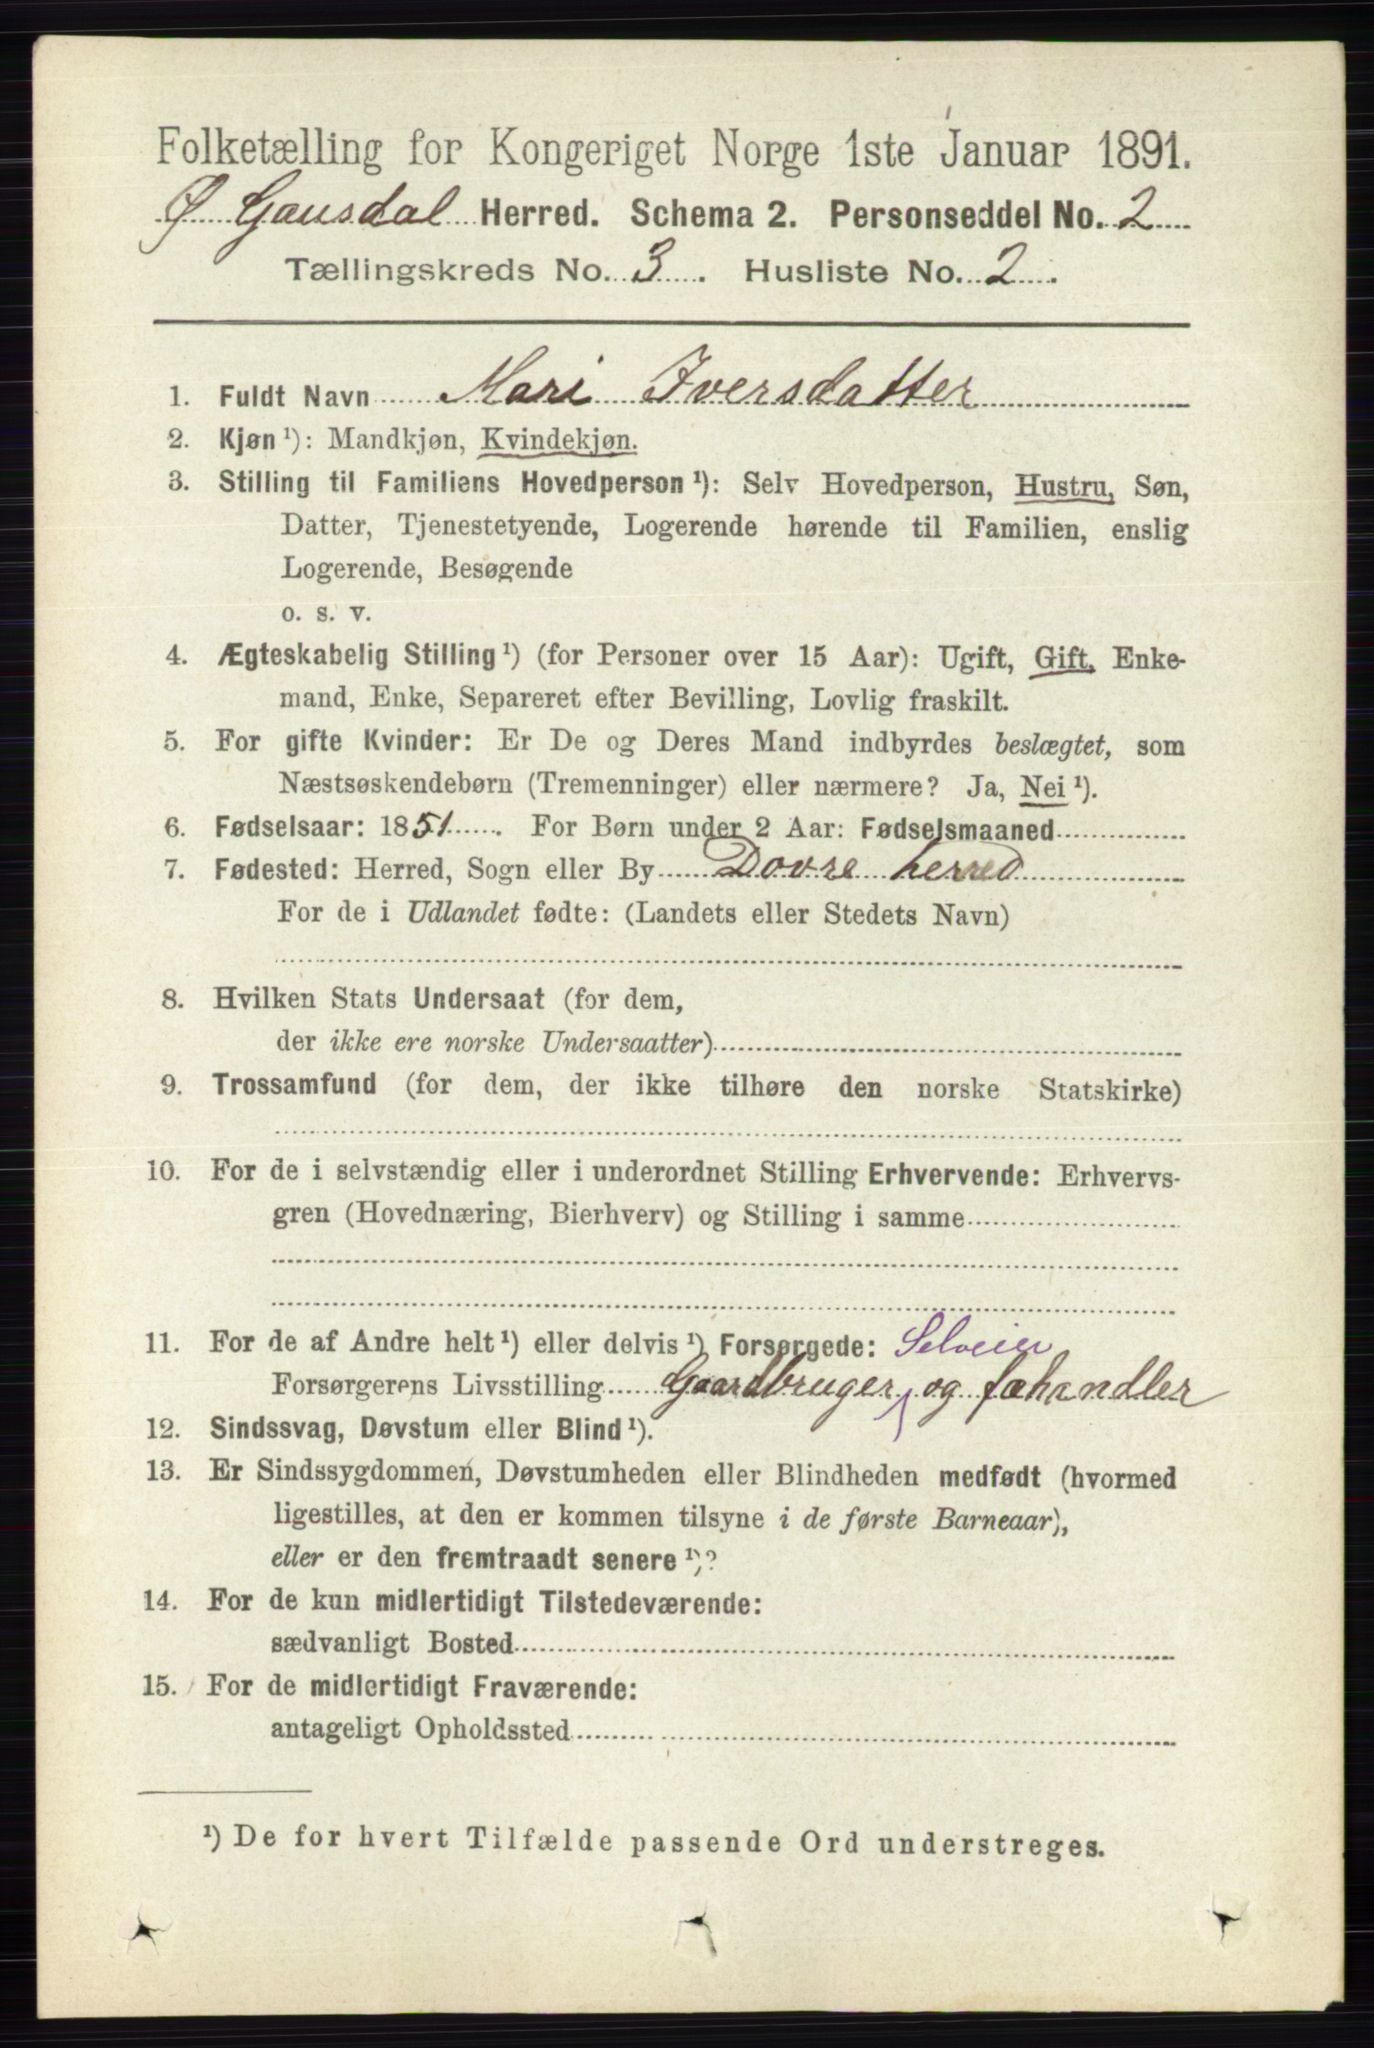 Folketælling for Kongeriget Norge 1ste Januar 1891.
Ø Gausdal Herred. Schema 2. Personseddel No. 2
Tællingskreds No. 3. Husliste No. 2.
1. Fuldt Navn Mari Iversdatter
2. Kjøn ¹): Mandkjøn, Kvindekjøn.
3. Stilling til Familiens Hovedperson ¹): Selv Hovedperson, Hustru, Søn,
Datter, Tjenestetyende, Logerende hørende til Familien, enslig
Logerende, Besøgende
o. s. v.
4. Ægteskabelig Stilling ¹) (for Personer over 15 Aar): Ugift, Gift, Enke-
mand, Enke, Separeret efter Bevilling, Lovlig fraskilt.
5. For gifte Kvinder: Er De og Deres Mand indbyrdes beslægtet, som
Næstsøskendebørn (Tremenninger) eller nærmere? Ja, Nei ¹).
6. Fødselsaar: 1851. For Børn under 2 Aar: Fødselsmaaned
7. Fødested: Herred, Sogn eller By Dovre herred
For de i Udlandet fødte: (Landets eller Stedets Navn)
8. Hvilken Stats Undersaat (for dem,
der ikke ere norske Undersaatter)
9. Trossamfund (for dem, der ikke tilhøre den norske Statskirke)
10. For de i selvstændig eller i underordnet Stilling Erhvervende: Erhvervs-
gren (Hovednæring, Bierhverv) og Stilling i samme
11. For de af Andre helt ¹) eller delvis ¹) Forsørgede: Selveier
Forsørgerens Livsstilling Gaardbruger og fæhandler
12. Sindssvag, Døvstum eller Blind ¹).
13. Er Sindssygdommen, Døvstumheden eller Blindheden medfødt (hvormed
ligestilles, at den er kommen tilsyne i de første Barneaar),
eller er den fremtraadt senere ¹)?
14. For de kun midlertidigt Tilstedeværende:
sædvanligt Bosted
15. For de midlertidigt Fraværende:
antageligt Opholdssted
¹) De for hvert Tilfælde passende Ord understreges.